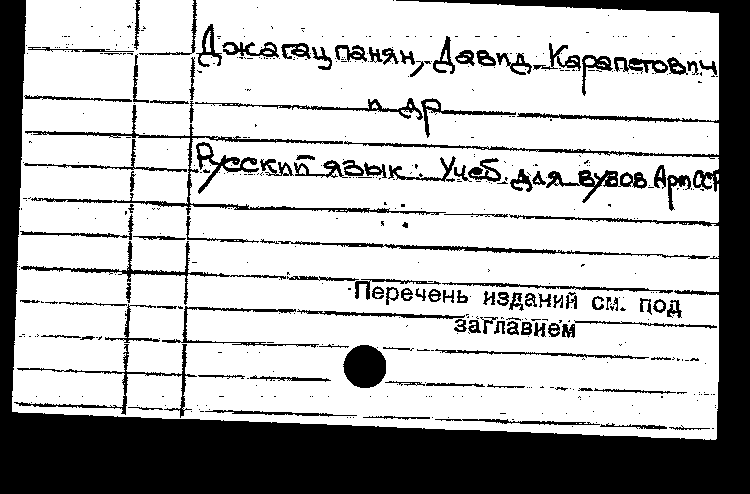 Джагацпанян, Давид Карапетович
и др
Русский язык : Учеб. для вузов АрмССР
Перечень изданий см. под
заглавием